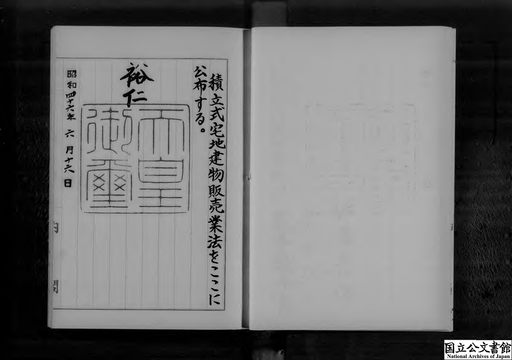 積立式宅地建物販売業法をここに
公布する。
裕仁
天皇
御璽
昭和四十六年 六月十六日
国立公文書館
National Archives of Japan